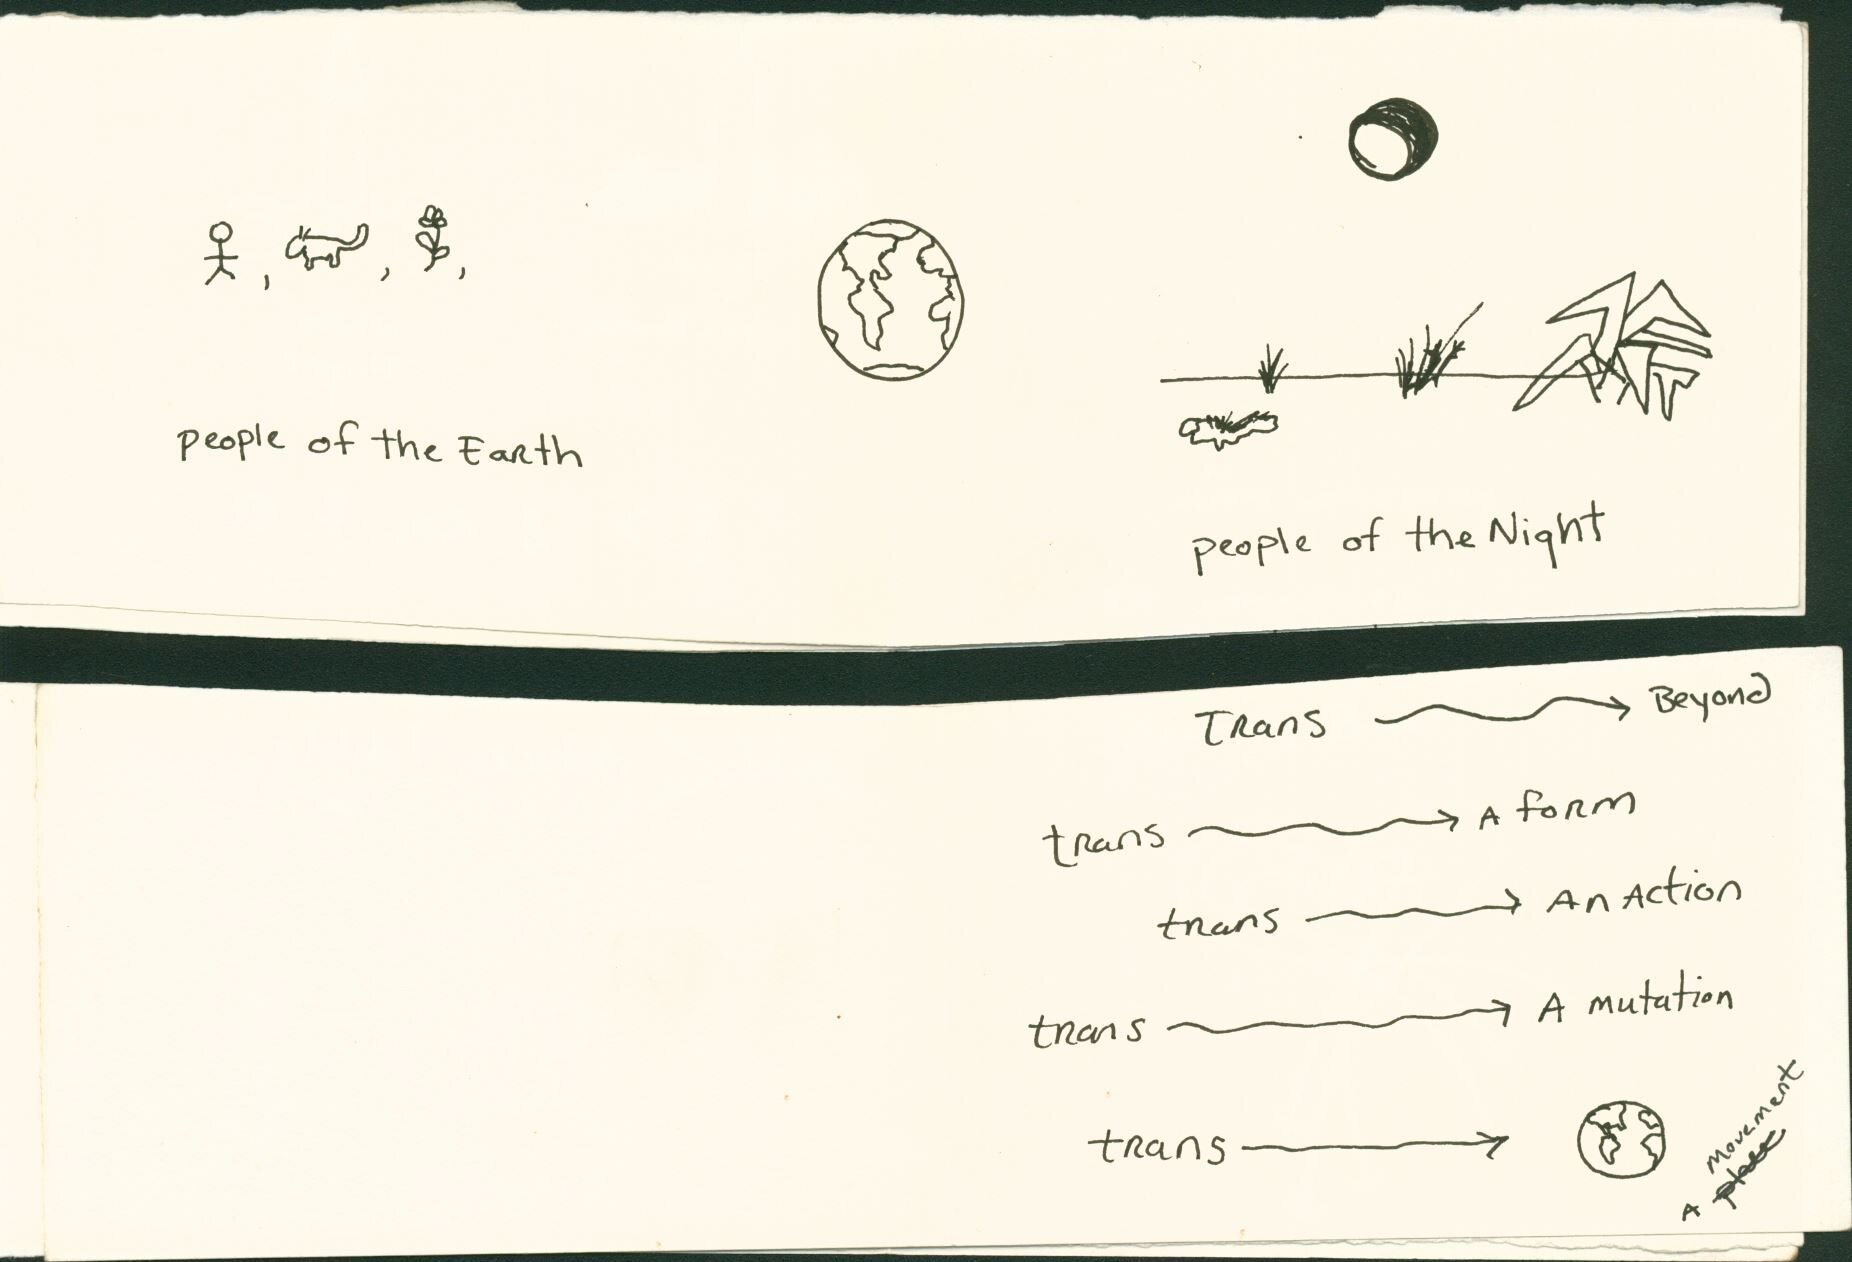 people of the Earth
people of the Night
Trans Beyond
trans A form
trans An Action
trans A mutation
trans
A place movement